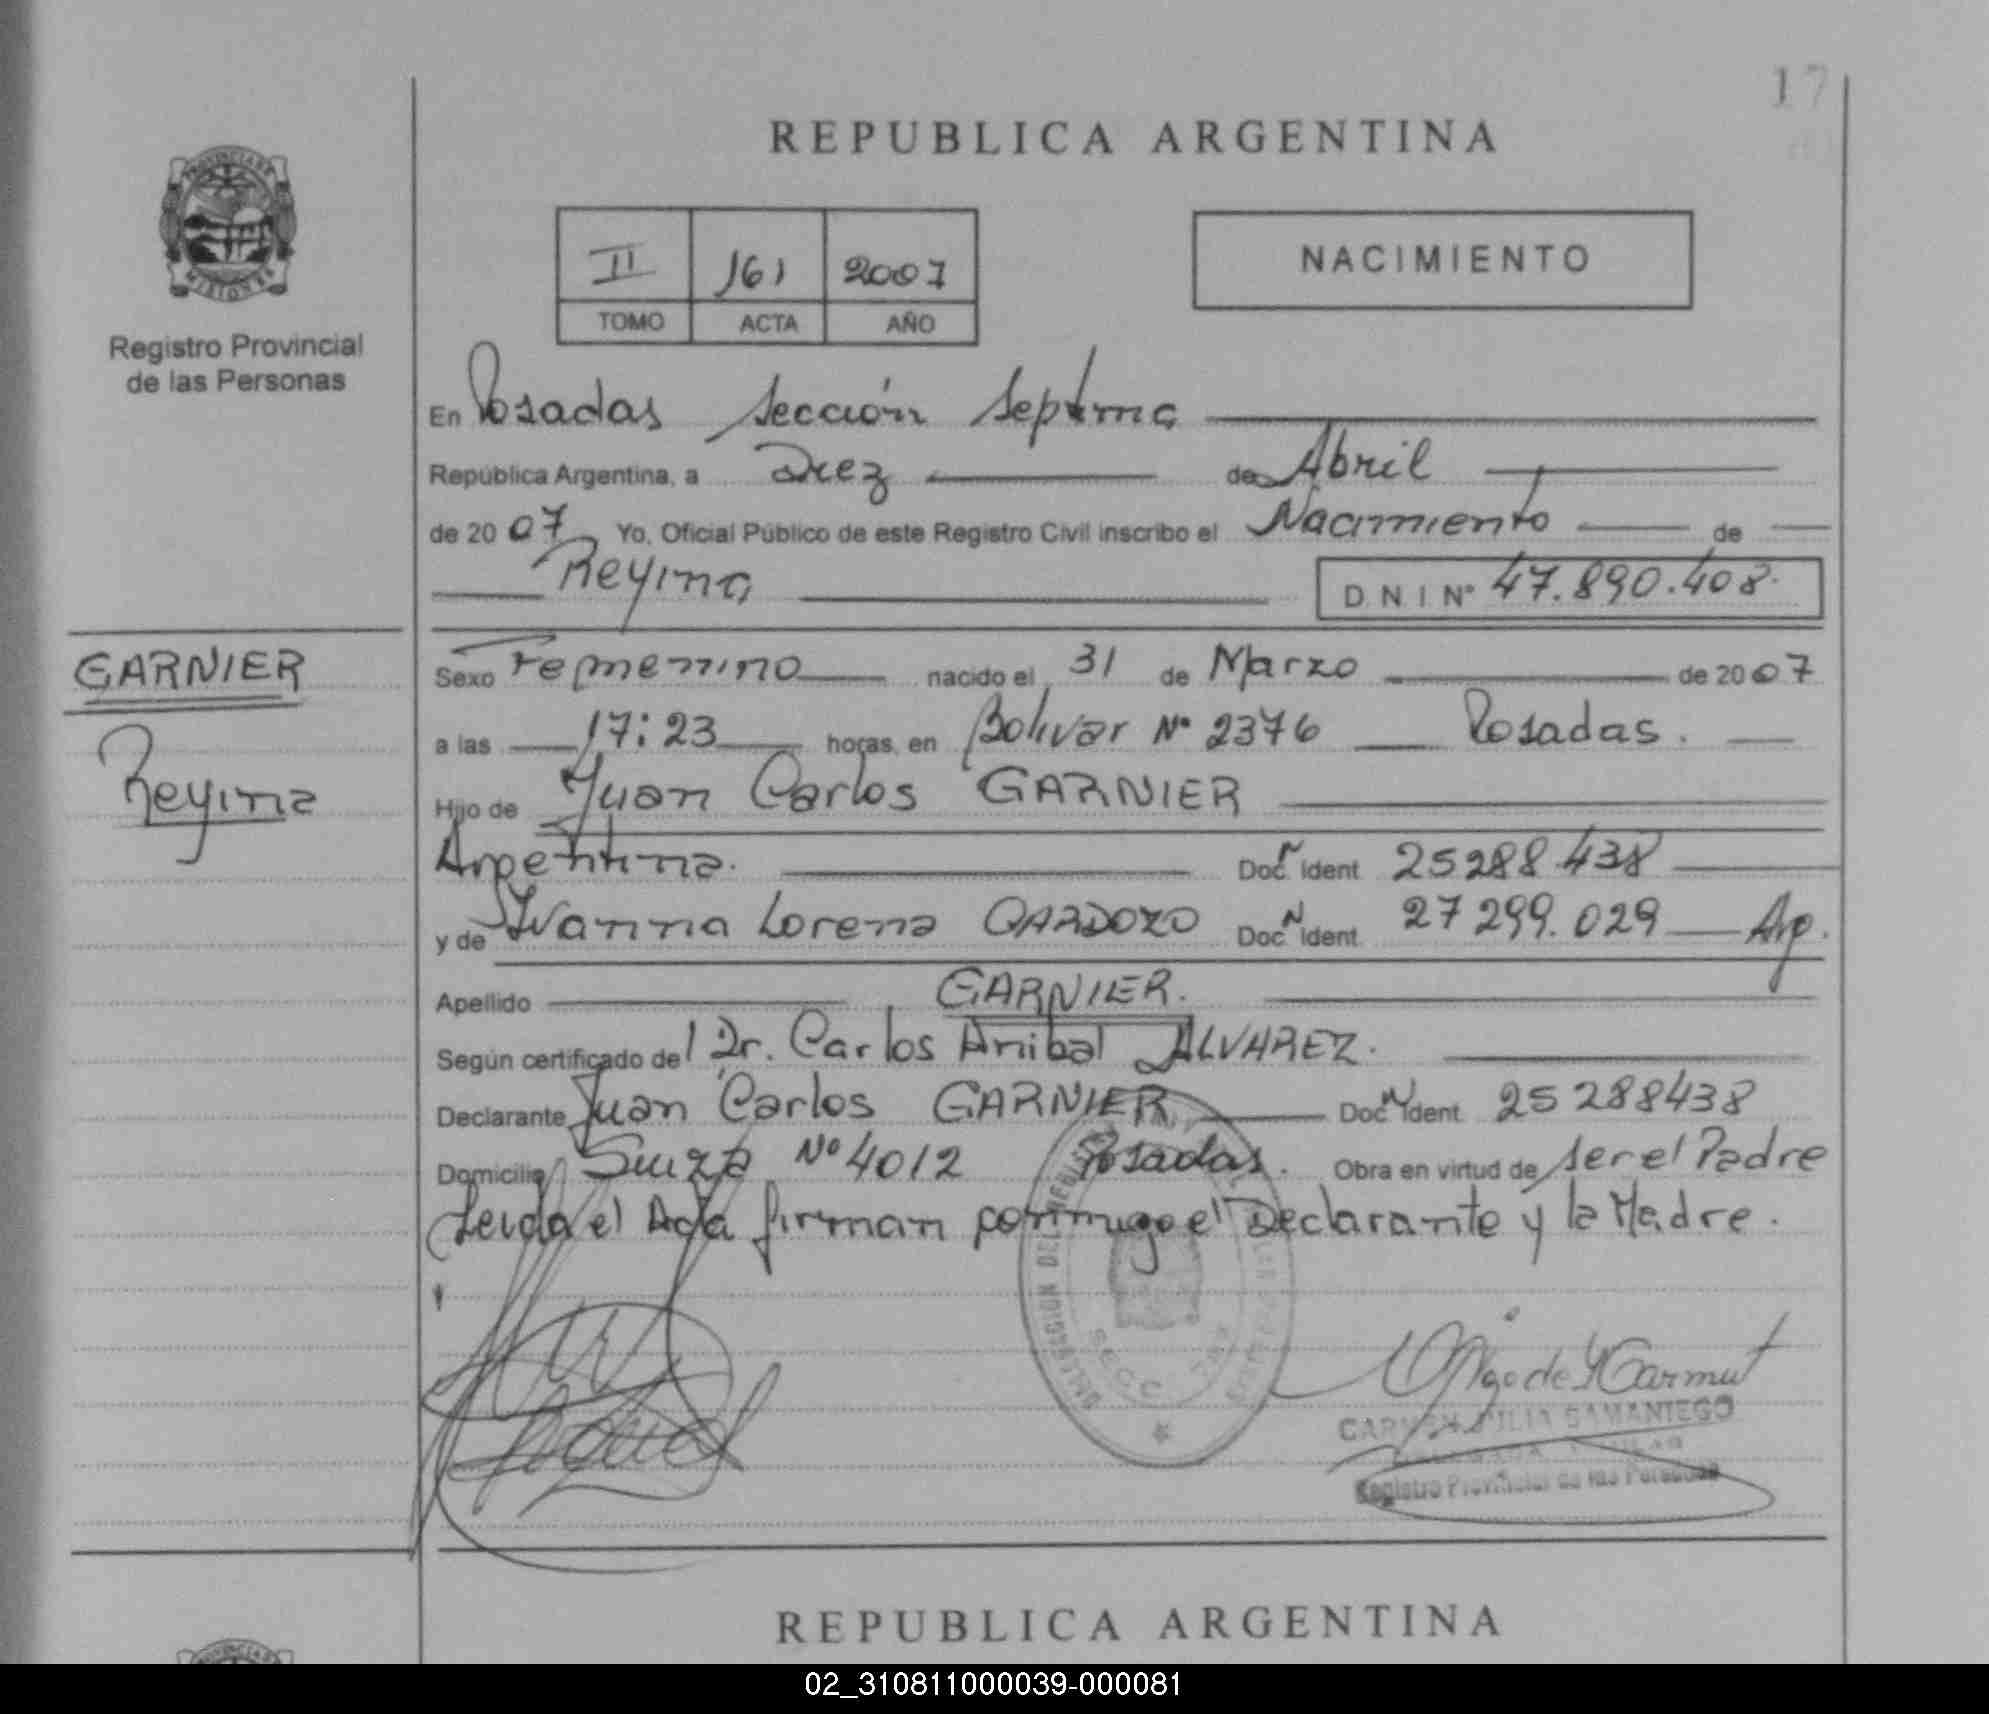 17
REPUBLICA ARGENTINA
PROVINCIA DE
MISIONES
Registro Provincial
de las Personas
II 161 2007
TOMO ACTA AÑO
NACIMIENTO
En Posadas Sección Septima
República Argentina, a Diez de Abril
de 2007 Yo, Oficial Público de este Registro Civil inscribo el Nacimiento de
Reyina D.N.I Nº 47.890.408.
GARNIER
Reyina
Sexo Femenino nacido el 31 de Marzo de 2007
a las 17:23 horas, en Bolivar Nº 2376 Posadas.
Hijo de Juan Carlos GARNIER
Argentina. Doc N Ident 25288.438
y de Ivanna Lorena CARDOZO Doc N Ident 27299.029 Arg.
Apellido GARNIER.
Según certificado del Dr. Carlos Anibal ALVAREZ.
Declarante Juan Carlos GARNIER Doc N Ident 25288438
Domicilio Suiza Nº 4012 Posadas. Obra en virtud de ser el Padre
Leida el Acta firman conmigo el Declarante y la Madre.
SECC
CARMEN SAMANIEGO
Registro Provincial de las Personas
REPUBLICA ARGENTINA
02_310811000039-000081